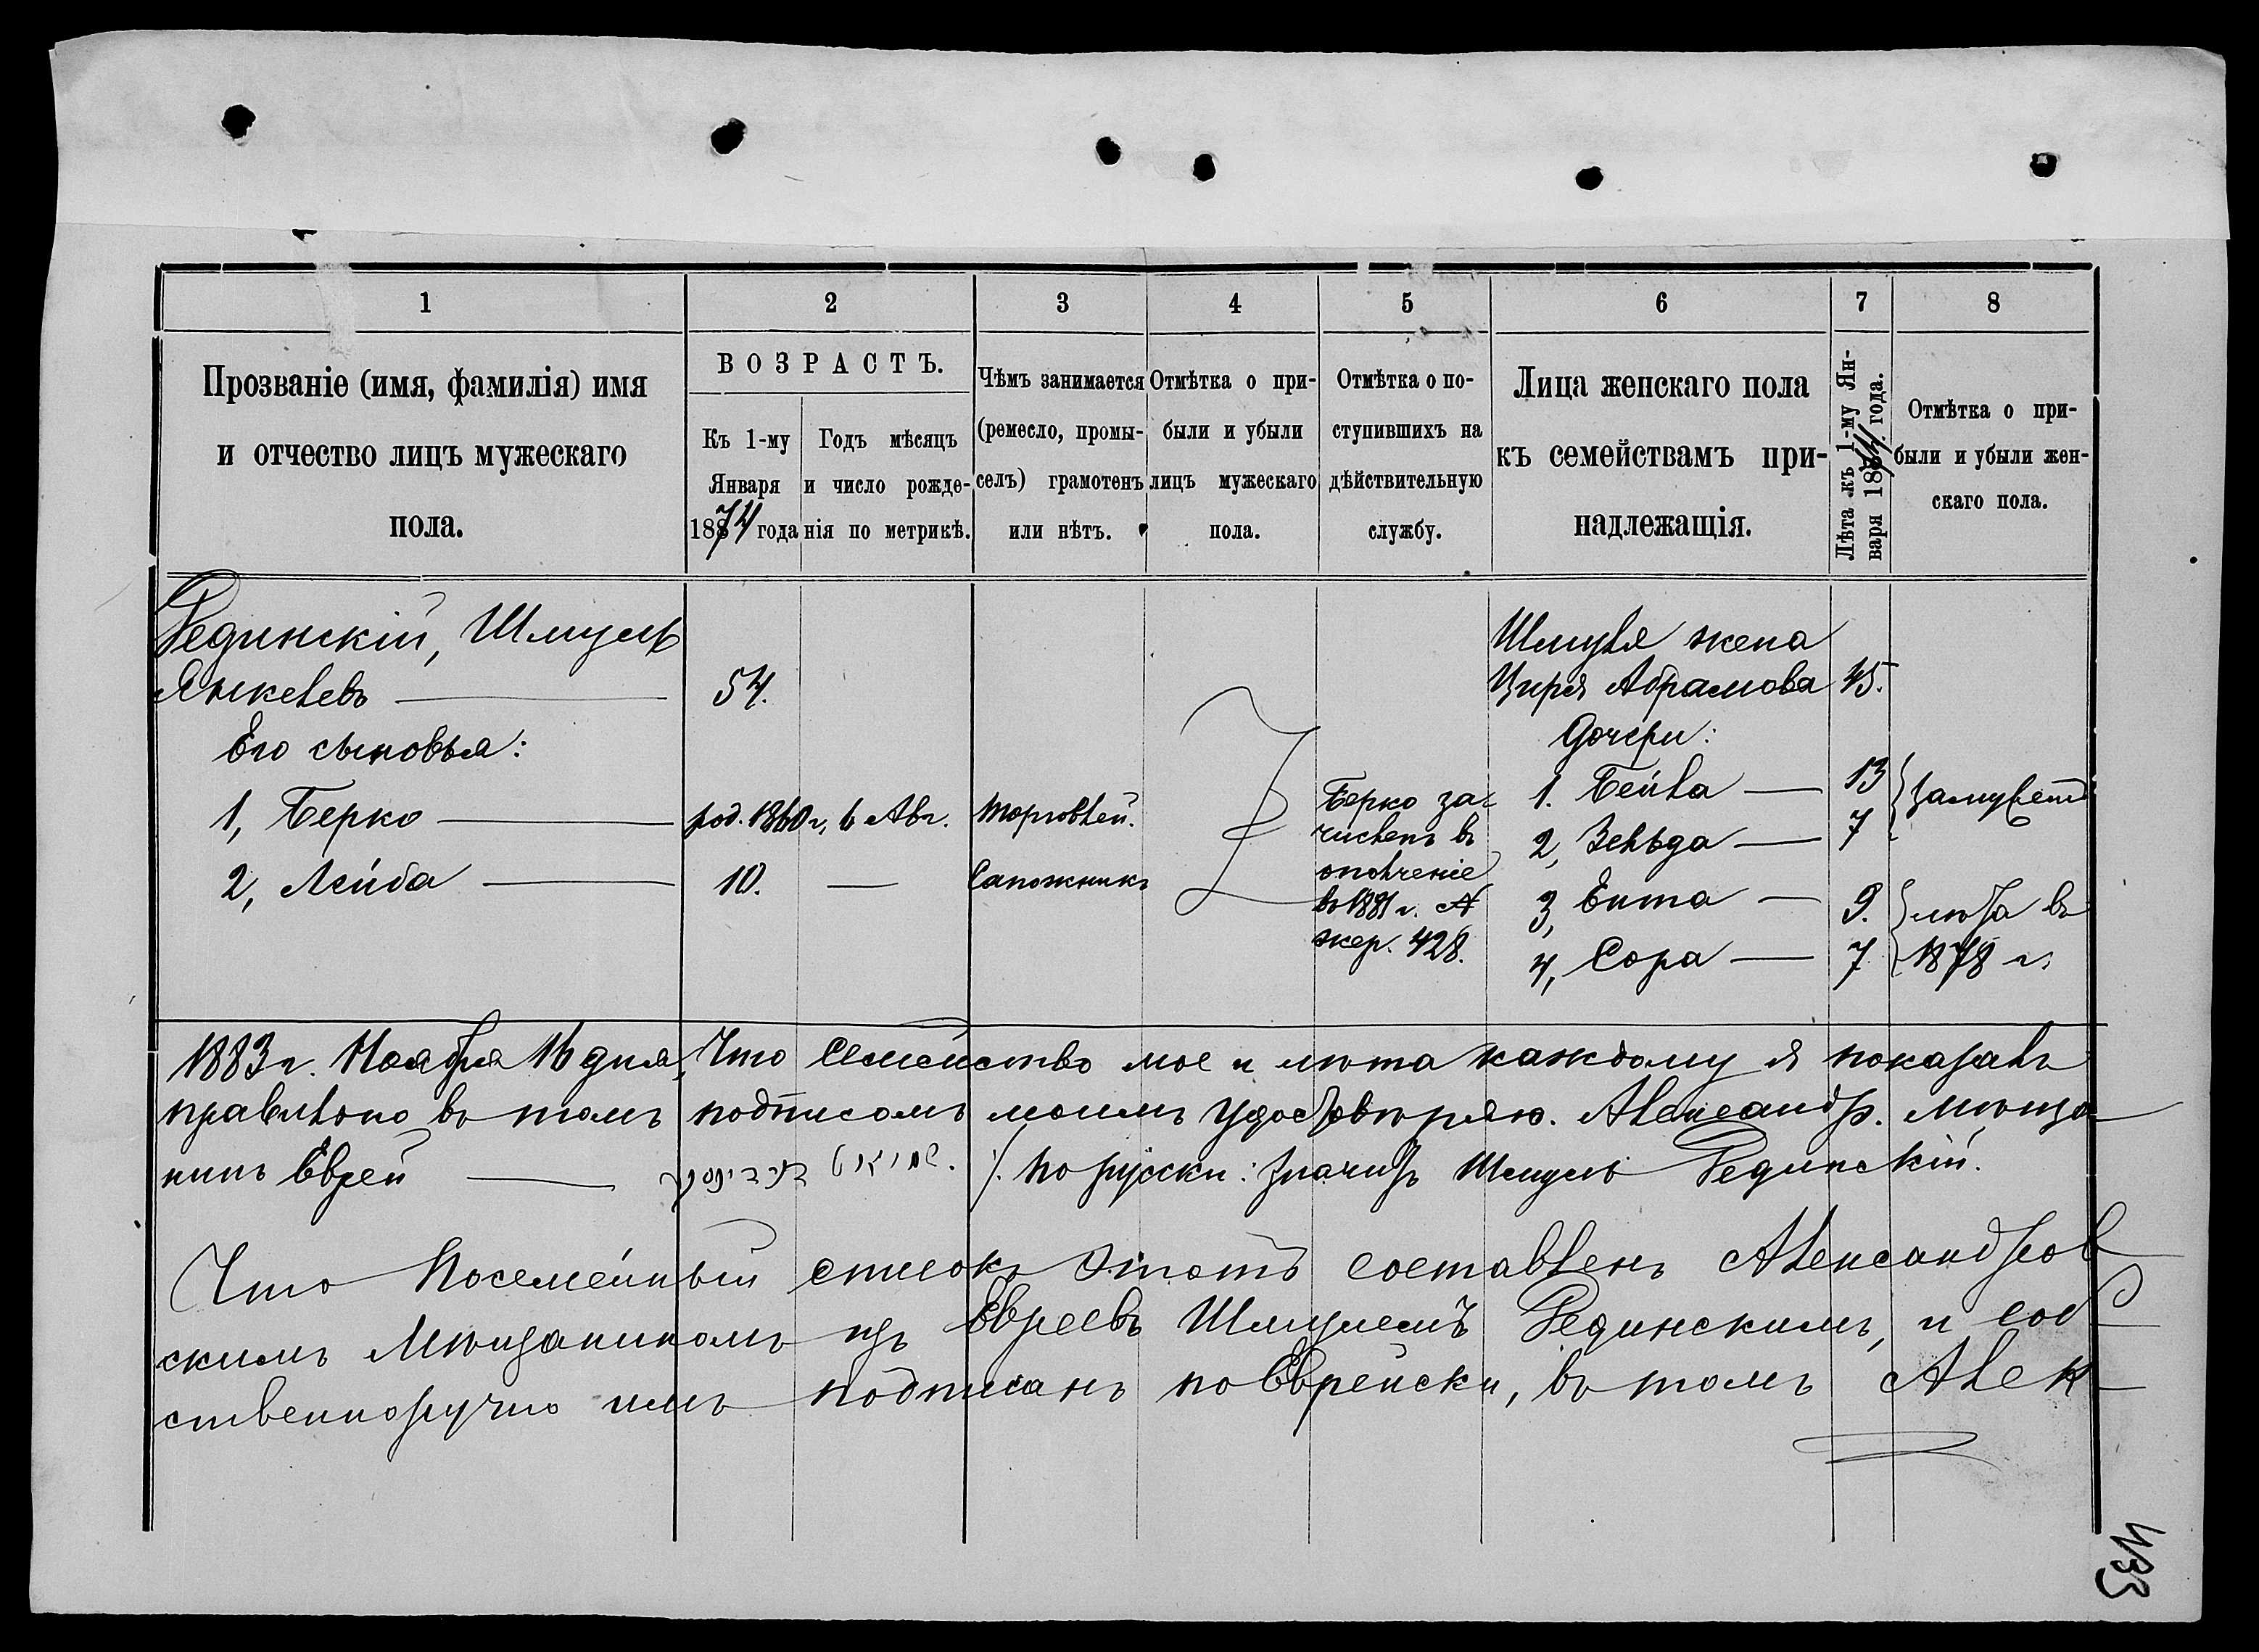 1 2 3 4 5 6 7 8
Прозваніе (имя, фамилія) имя
и отчество лицъ мужескаго
пола.
ВОЗРАСТЪ.
Къ 1-му
Января
1874 года
Годъ мѣсяцъ
и число рожде-
нія по метрикѣ.
Чѣмъ занимается
(ремесло, промы-
селъ) грамотенъ
или нѣтъ.
Отмѣтка о при-
были и убыли
лицъ мужескаго
пола.
Отмѣтка о по-
ступившихъ на
дѣйствительную
службу.
Лица женскаго пола
къ семействамъ при-
надлежащія.
Лѣта къ 1-му Ян-
варя 1874 года.
Отмѣтка о при-
были и убыли жен-
скаго пола.
Рединскій, Шмуль
Янкелевъ — 54.
Его сыновья:
1, Берко — род. 1860 г, 6 Авг. Торговлей.
2, Лейба — 10. — Сапожникъ
Берко за-
численъ въ
ополченіе
въ 1881 г. №
жер. 428.
Шмуля жена
Цирля Абрамова 45.
Дочери:
1. Бейла — 13
2, Зельда — 7
замужемъ
3, Ента — 9.
4, Сора — 7
въ
1878 г.
1883 г. Ноября 16 дня, Что семейство мое и лѣта каждому я показалъ
правильно въ томъ подписомъ моимъ удостовѣряю. Александр. мѣща-
нинъ Еврей — שמואל
/. по русски: значитъ Шмуль Рединскій.
Что Посемейный списокъ этотъ составленъ Александров-
скимъ Мѣщаниномъ изъ Евреевъ Шмулемъ Рединскимъ, и соб-
ственноручно имъ подписанъ по Еврейски, въ томъ Алек-
433